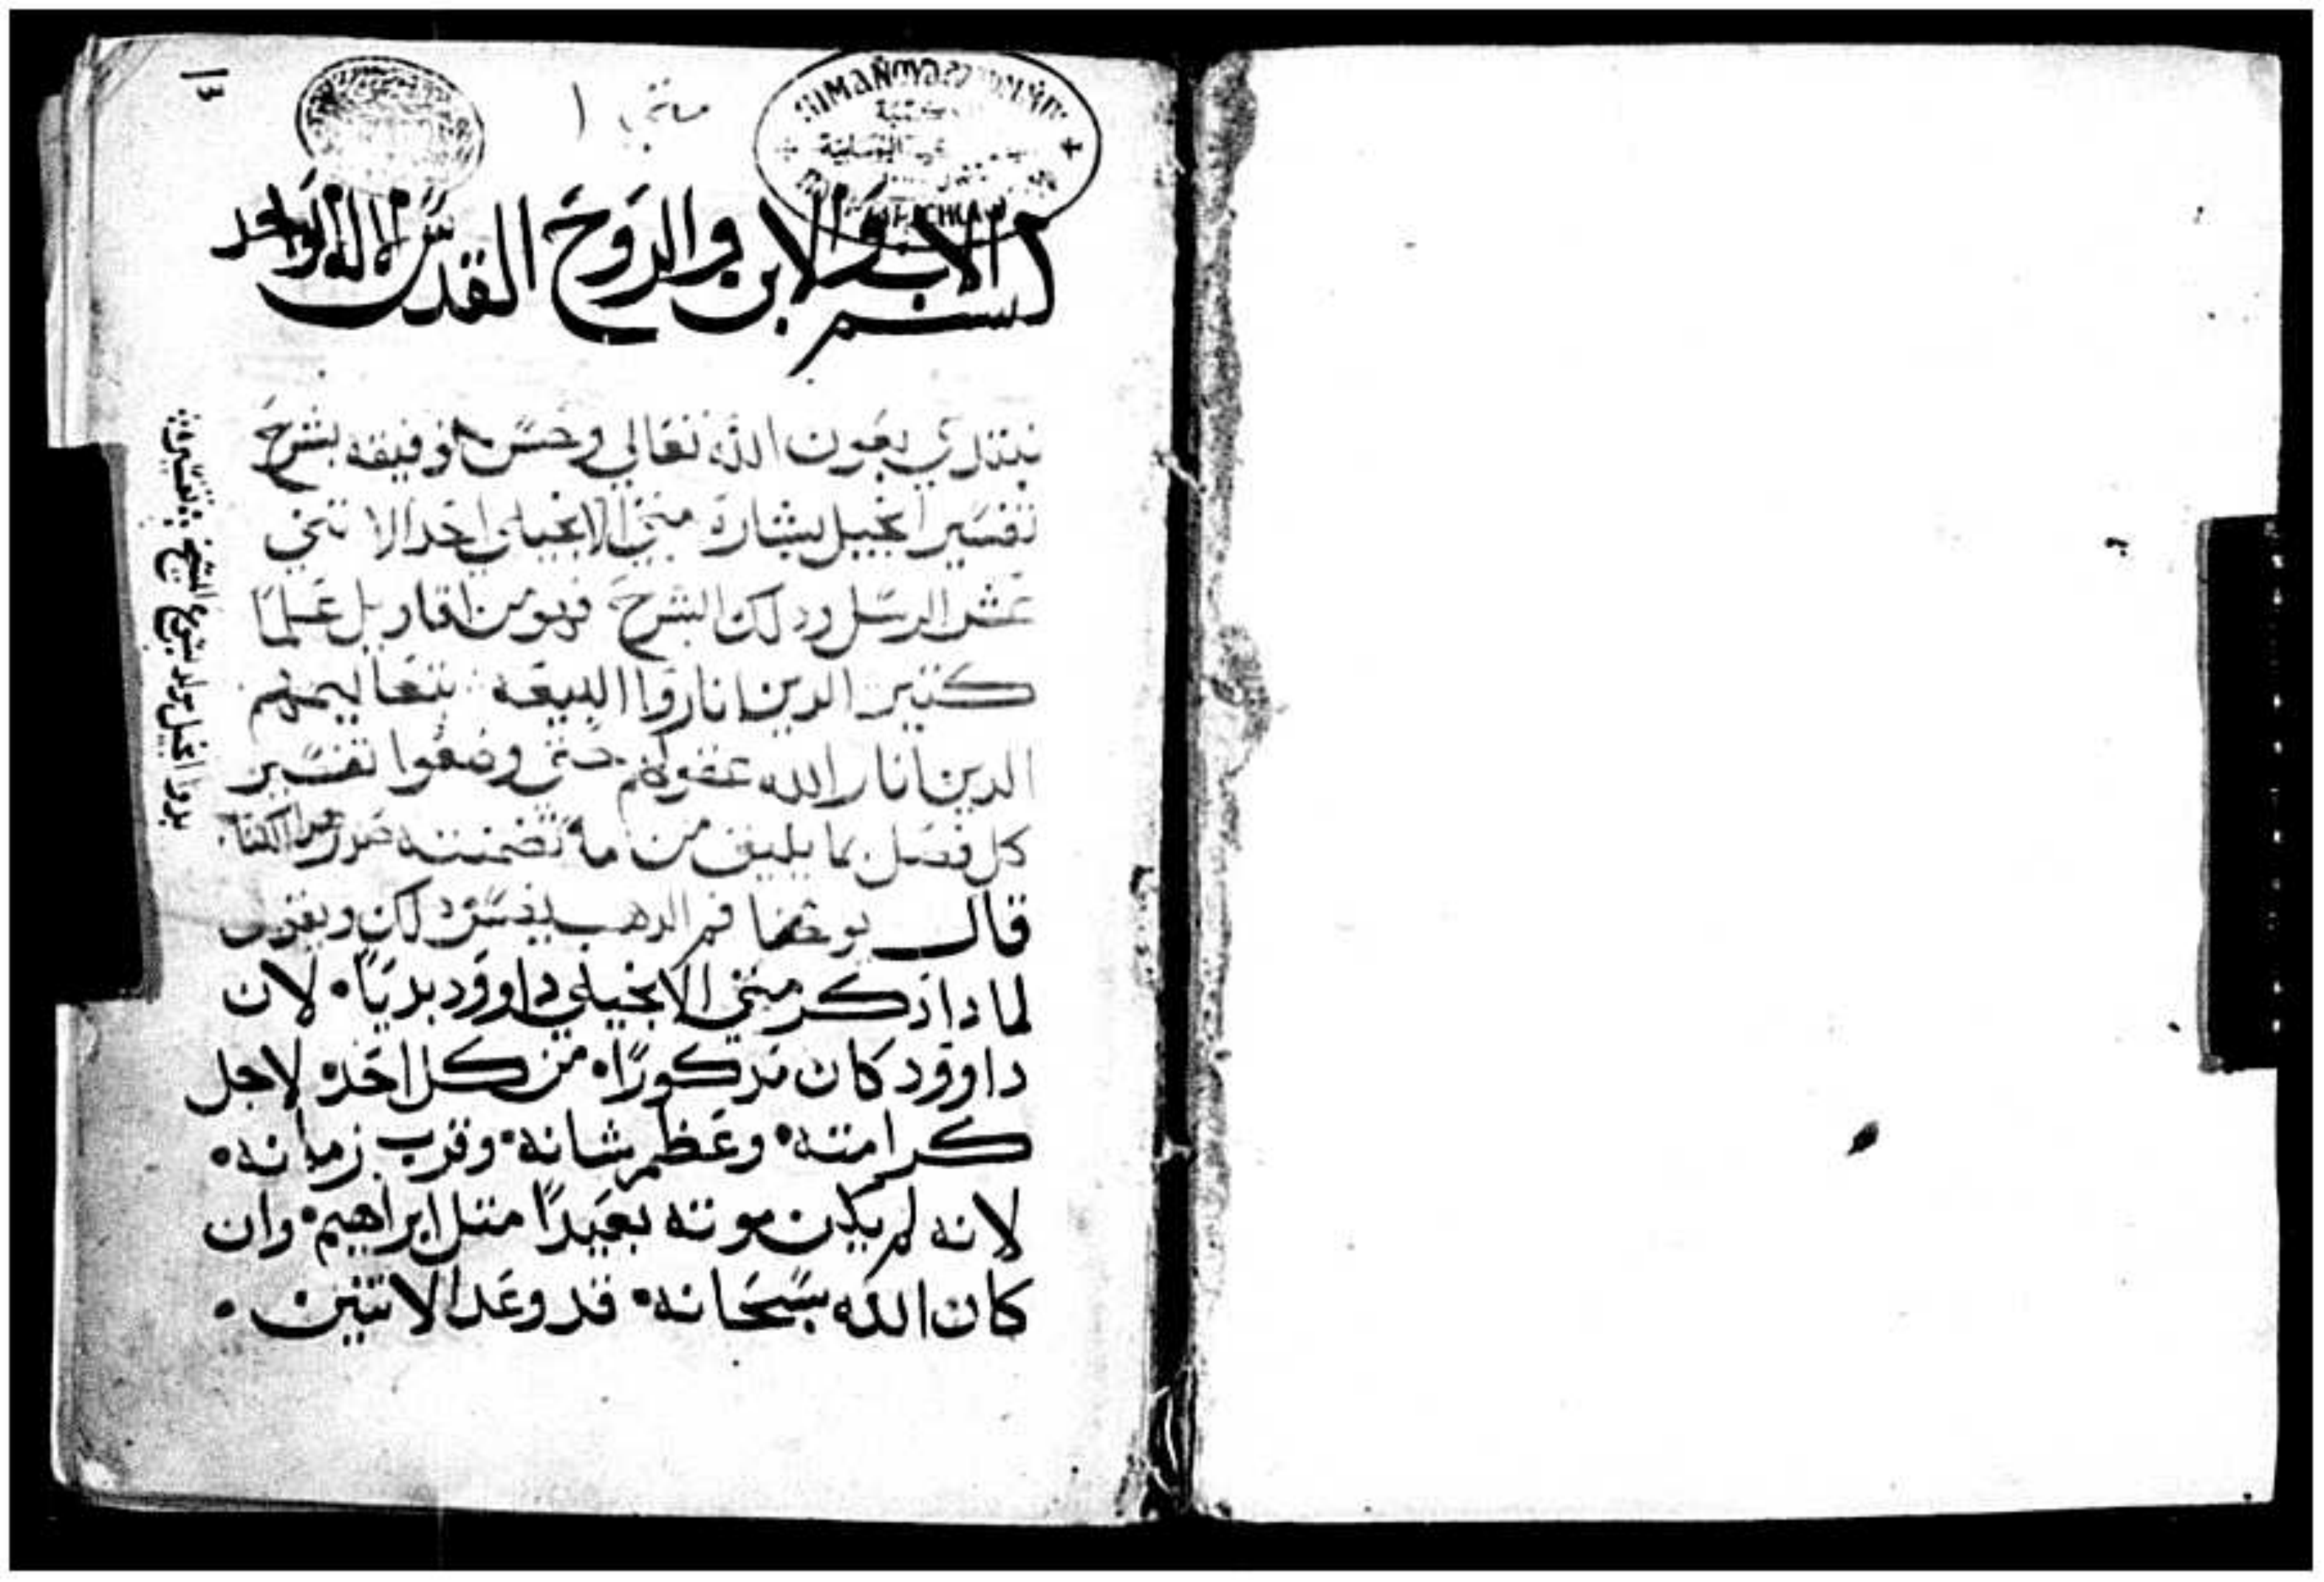 متي ١
بسم الاب والابن والروح القدس الاله الواحد
نبتدي بعون الله تعالي وحسن توفيقه بشرح
تفسير انجيل بشارة متي الانجيلي احد الاتني
عشر الرسل ودلك الشرح فهو من اقاويل علما
كتير الدين اناروا البيعه بتعاليمهم
الدين انار الله عقولهم حتي وضعوا تفسير
كل فصل بما يليق من ما تضمنته هدا الكتاب
قال يوحنا فم الدهب يفسر دلك ويقول
لمادا دكر متي الانجيلي داوود بديا • لان
داوود كان مدكورا • من كل احد • لاجل
كرامته • وعظم شانه • وقرب زمانه •
لانه لم يكن موته بعيدا متل ابراهيم • وان
كان الله سبحانه • قد وعد الاتنين •